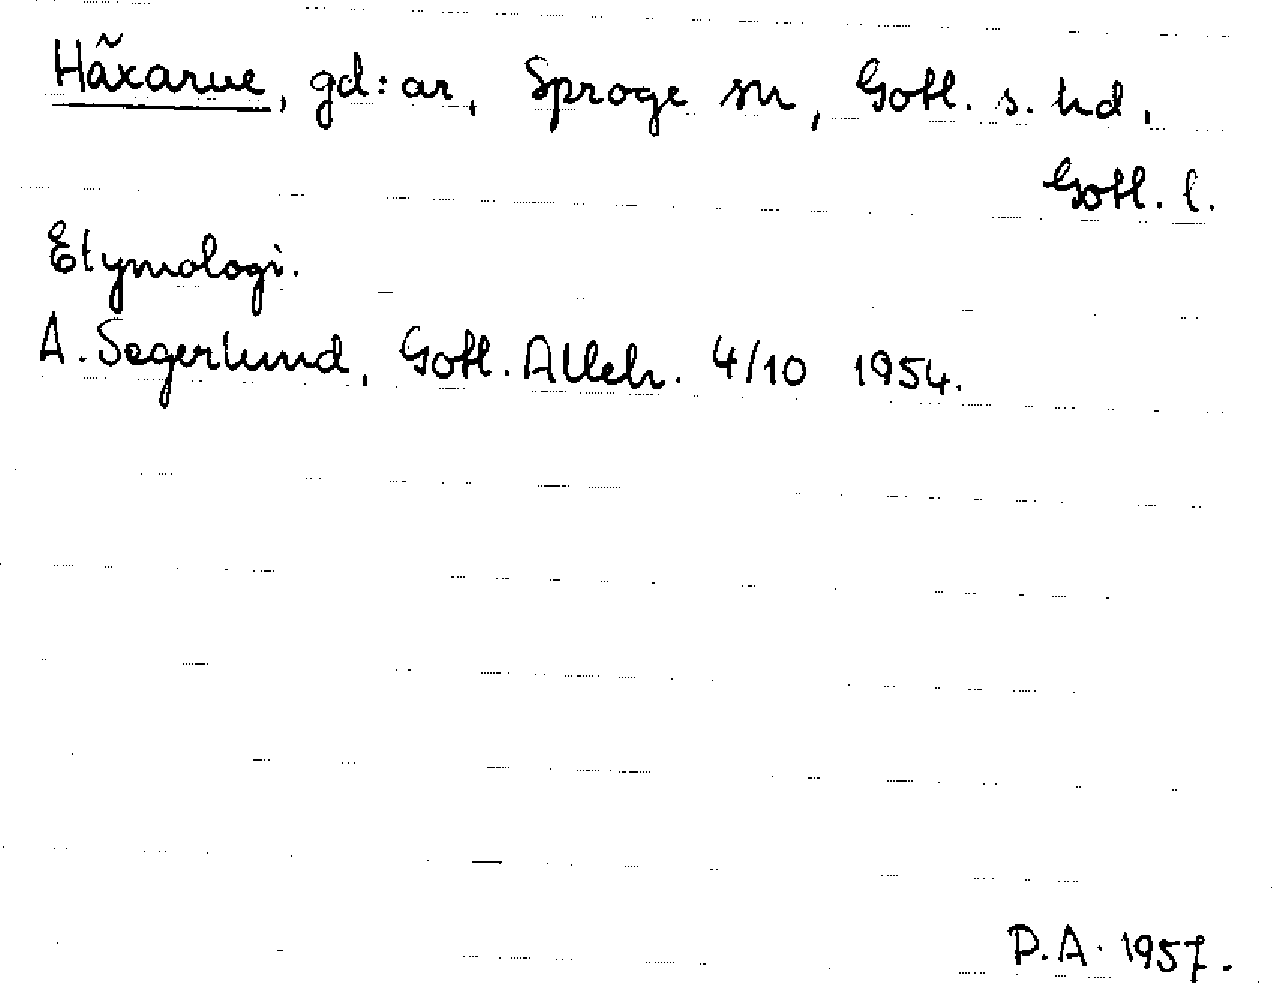 Häxarve, gd:ar, Sproge sn, Gotl. s. hd,
Gotl. l.
Etymologi.
A. Segerlund, Gotl. Alleh. 4/10 1954.
P.A. 1957.